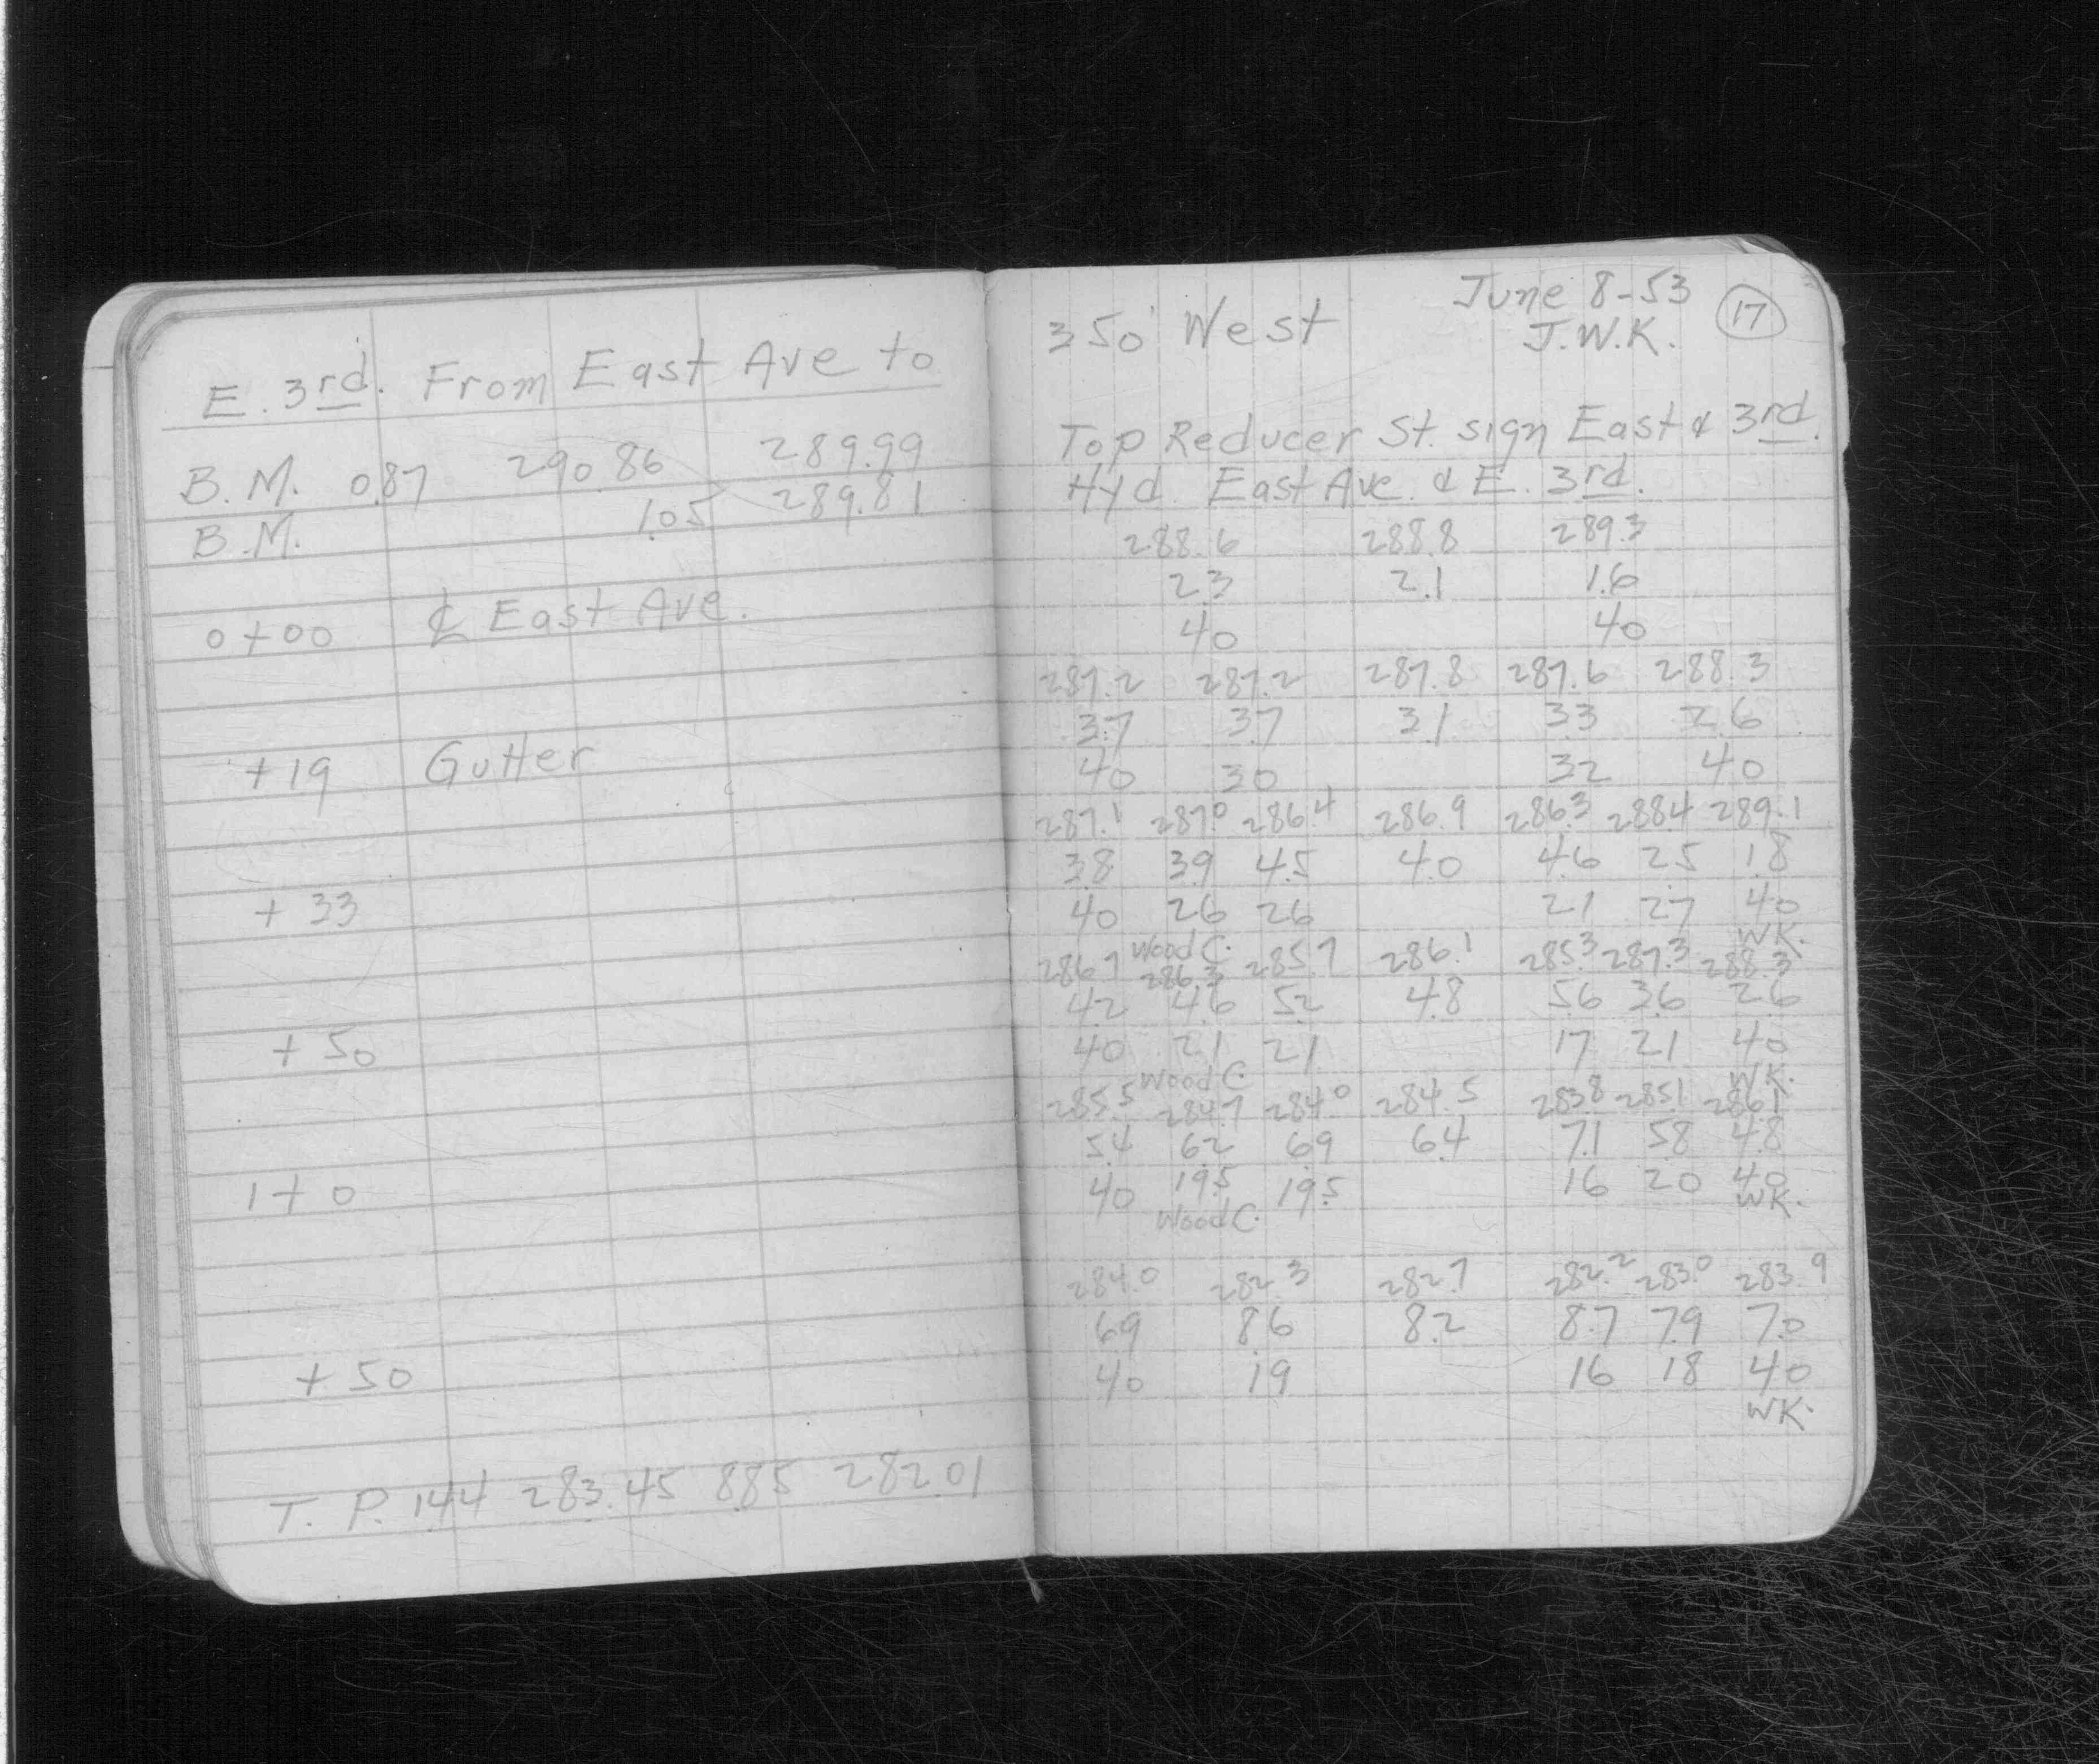 E. 3rd. From East Ave to
B.M. 0.87 290.86 289.99
B.M. 1.05 289.81
0+00 ℄ East Ave.
+19 Gutter
+33
+50
1+0
+50
T.P. 1.44 283.45 8.85 282.01
June 8-53 17
350' West J.W.K.
Top Reducer St. sign East & 3rd.
Hyd. East Ave. & E. 3rd.
288.6 288.8 289.3
2.3 2.1 1.6
40 40
287.2 287.2 287.8 287.6 288.3
3.7 3.7 3.1 3.3 2.6
40 30 32 40
287.1 287.0 286.4 286.9 286.3 288.4 289.1
3.8 3.9 4.5 4.0 4.6 2.5 1.8
40 26 26 21 27 40
Wood C. WK.
286.7 286.3 285.7 286.1 285.3 287.3 288.3
4.2 4.6 5.2 4.8 5.6 3.6 2.6
40 21 21 17 21 40
Wood C. WK.
285.5 284.7 284.0 284.5 283.8 285.1 286.1
5.4 6.2 6.9 6.4 7.1 5.8 4.8
40 19.5 19.5 16 20 40
Wood C. WK.
284.0 282.3 282.7 282.2 283.0 283.9
6.9 8.6 8.2 8.7 7.9 7.0
40 19 16 18 40
WK.